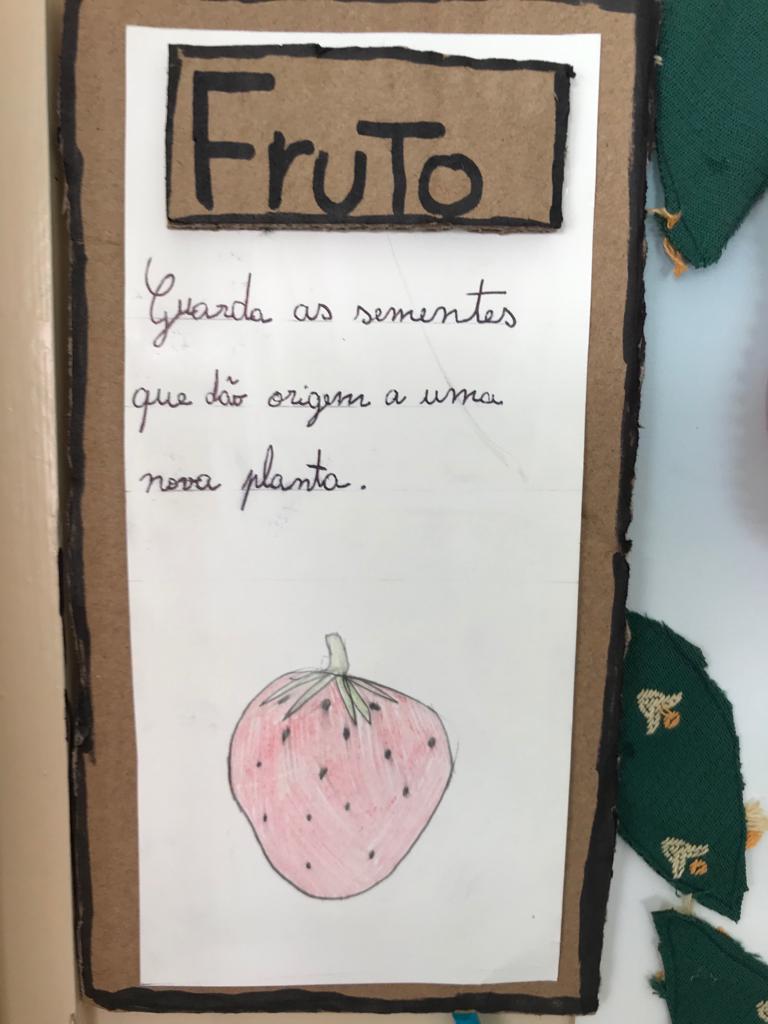 FruTo
Guarda as sementes
que dão origem a uma
nova planta.